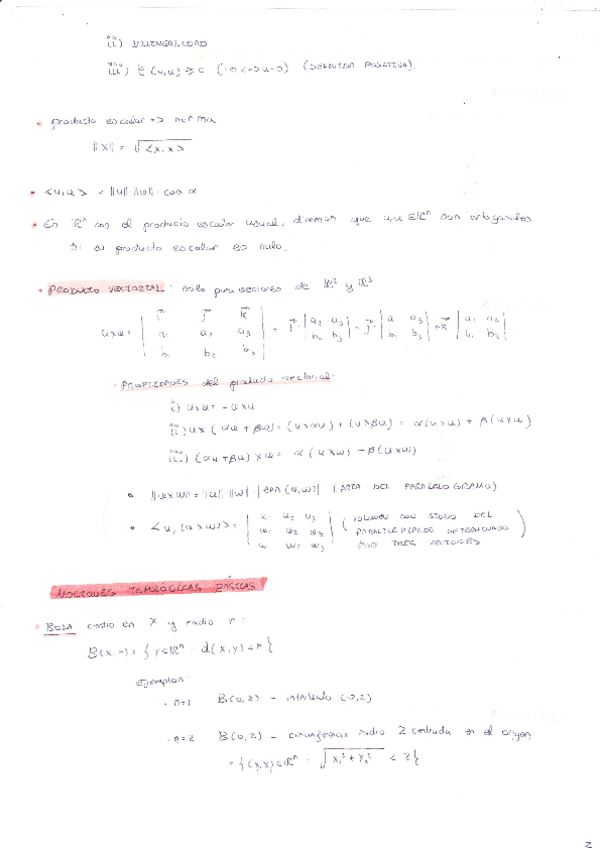 iii) BILINEALIDAD
iiii) (u,u) ≥ 0 (=0 <=> u=0) (DEFINIDA POSITIVA).
• producto escalar => norma
||x|| = √<x,x>
• <u,w> = ||u||·||w||·cos α
• En ℝⁿ con el producto escalar usual, diremos que u,w ∈ ℝⁿ son ortogonales
si su producto escalar es nulo.
• PRODUCTO VECTORIAL: solo para vectores de ℝ² y ℝ³
u×w = | i⃗ j⃗ k⃗ | = i⃗·| a₂ a₃ | - j⃗·| a₁ a₃ | + k⃗·| a₁ a₂ |
| a₁ a₂ a₃ | | b₂ b₃ | | b₁ b₃ | | b₁ b₂ |
| b₁ b₂ b₃ |
- PROPIEDADES del producto vectorial:
i) u×w = -w×u
ii) u×(αu + βw) = (u×αu) + (u×βw) = α(u×u) + β(u×w)
iii) (αu + βu)×w = α(u×w) - β(u×w)
• ||u×w|| = ||u||·||w||·|sen(u,w)| (AREA DEL PARALELOGRAMO)
• <u,(u×w)> = | u₁ u₂ u₃ | (VOLUMEN CON SIGNO DEL
PARALELEPIPEDO DETERMINADO
| w₁ w₂ w₃ | POR TRES VECTORES)
NOCIONES TOPOLÓGICAS BÁSICAS
• BOLA centro en x y radio r:
B(x,r) = { y∈ℝⁿ : d(x,y) < r }
Ejemplos:
- n=1 B(0,2) - intervalo (-2,2)
- n=2 B(0,2) - circunferencia radio 2 centrada en el origen
= { (x₁,x₂)∈ℝⁿ : √x₁²+x₂² < 2 }
2